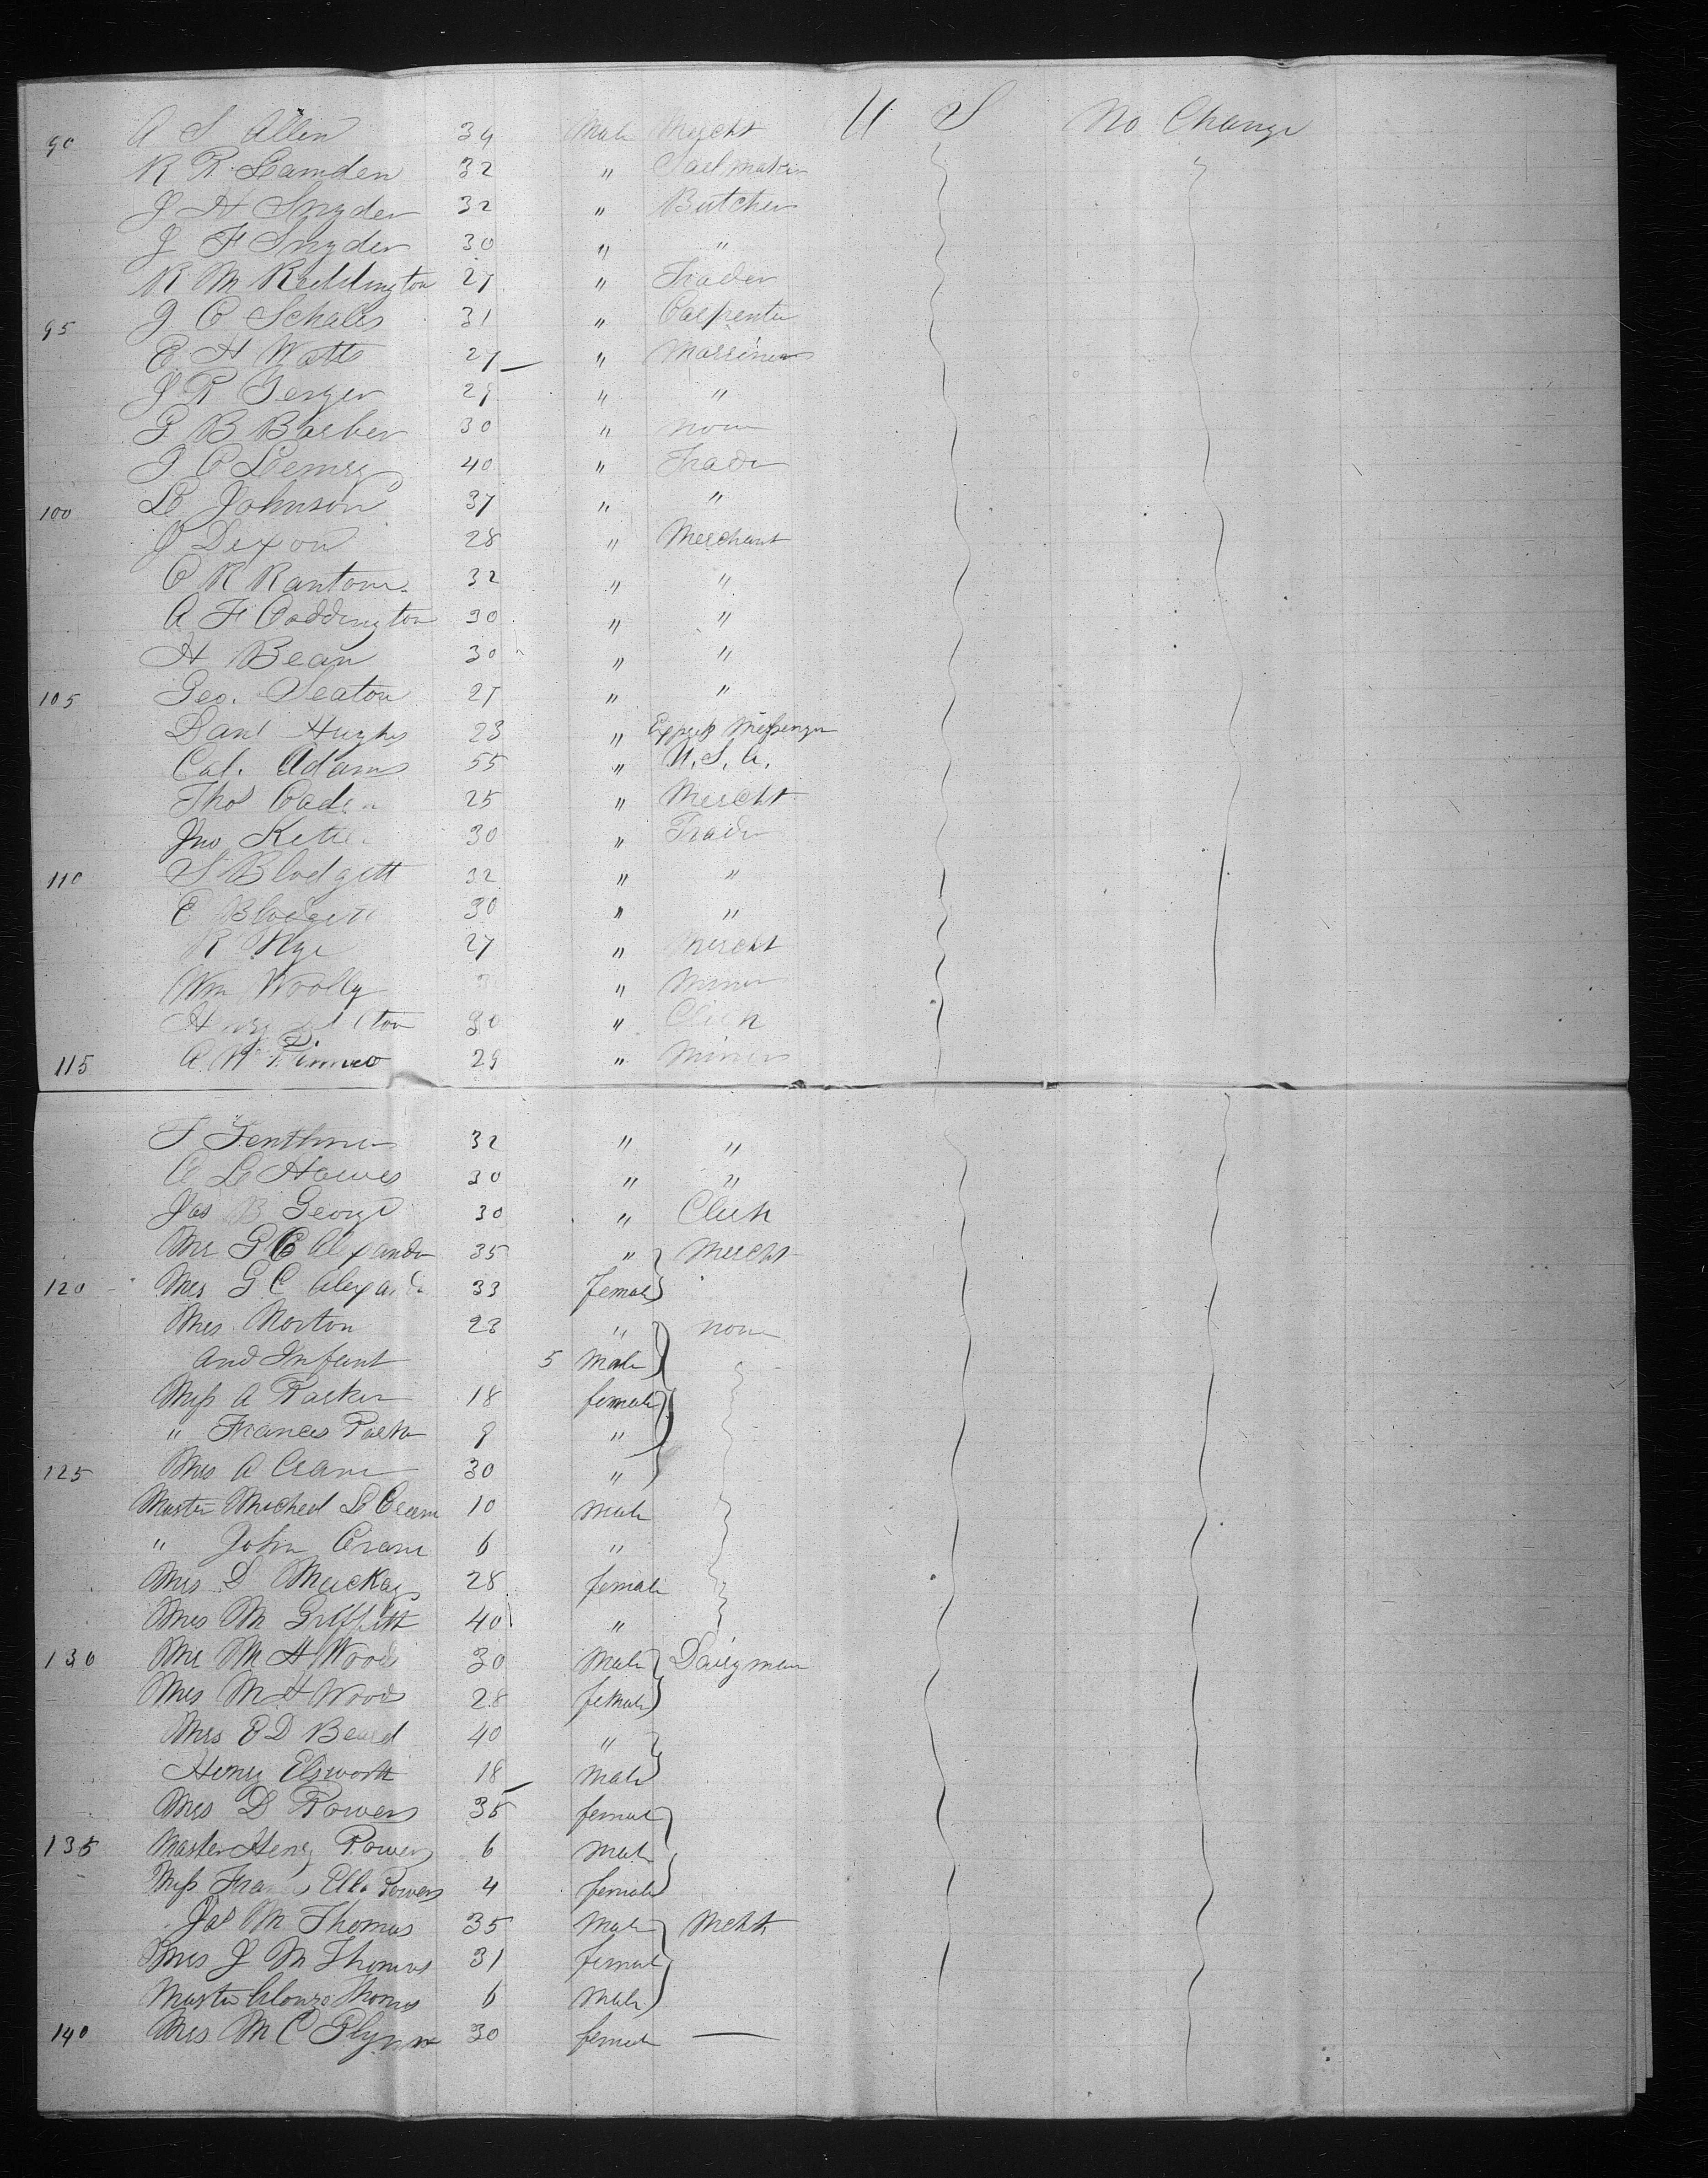 90 A S Allen 34 Male Mercht U S No Change
R R Lamden 32 " Sailmaker
J H Snyder 32 " Butcher
J F Snyder 30 " "
R M Reddington 27 " Trader
95 J C Schales 31 " Carpenter
E H Watts 27 " Marriner
J R Gerger 29 " "
G B Barber 30 " none
J C Lemsy 40 " Trader
100 L Johnson 37 " "
J Dexon 28 " Merchant
C R Rantom 32 " "
A F Coddington 30 " "
H Bean 30 " "
105 Geo. Seaton 27 " "
Danl Hughs 23 " Express Messenger
Cal. Adams 55 " U.S.A.
Thos Caden 25 " Mercht
Jno Kettle 30 " Trader
110 S Blodgett 32 " "
E Blodgett 30 " "
R Nye 27 " Mercht
Wm Woolly " Miner
Henry 30 " Clerk
115 A. W. 29 " Miner
F 32 " "
A L Hawes 30 " "
Jas B George 30 " Clerk
Mr G C Alexander 35 " Mercht
120 Mrs G C Alexander 33 female
Mrs Morton 23 " none
and Infant 5 Male
Miss A Parker 18 female
" Frances Parker 9 "
125 Mrs A Crane 30 "
Master Micheel L Crane 10 Male
" John Crane 6 "
Mrs D Mackay 28 female
Mrs M Griffith 40 "
130 Mr M H Woods 30 Male Dairyman
Mrs M H Woods 28 female
Mrs E D Beard 40 "
Henry Elsworth 18 Male
Mrs D Powers 35 female
135 Master Henry Powers 6 Male
Miss Frances Ella Powers 4 female
Jas M Thomas 35 Male Mcht
Mrs J M Thomas 31 female
Master Alonzo Thomas 6 Male
140 Mrs M C Plynn 30 female —